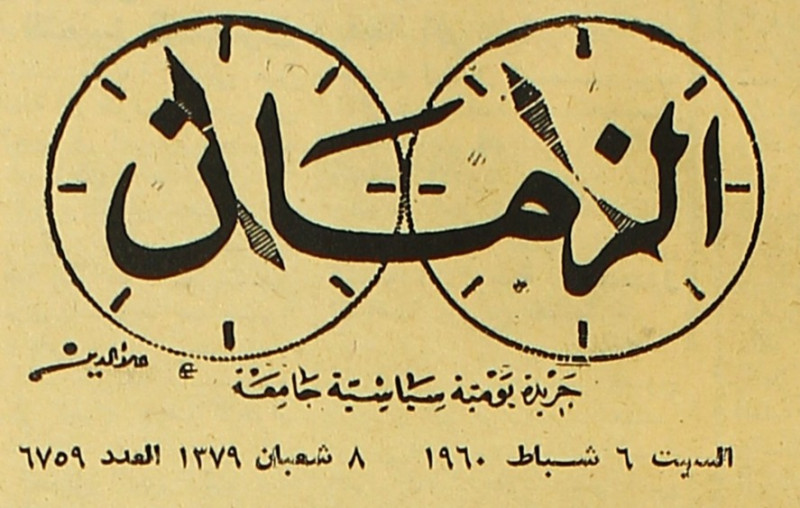 الزمان
علاء الدين
جريدة يومية سياسية جامعة
السبت ٦ شباط ١٩٦٠ ٨ شعبان ١٣٧٩ العدد ٦٧٥٩